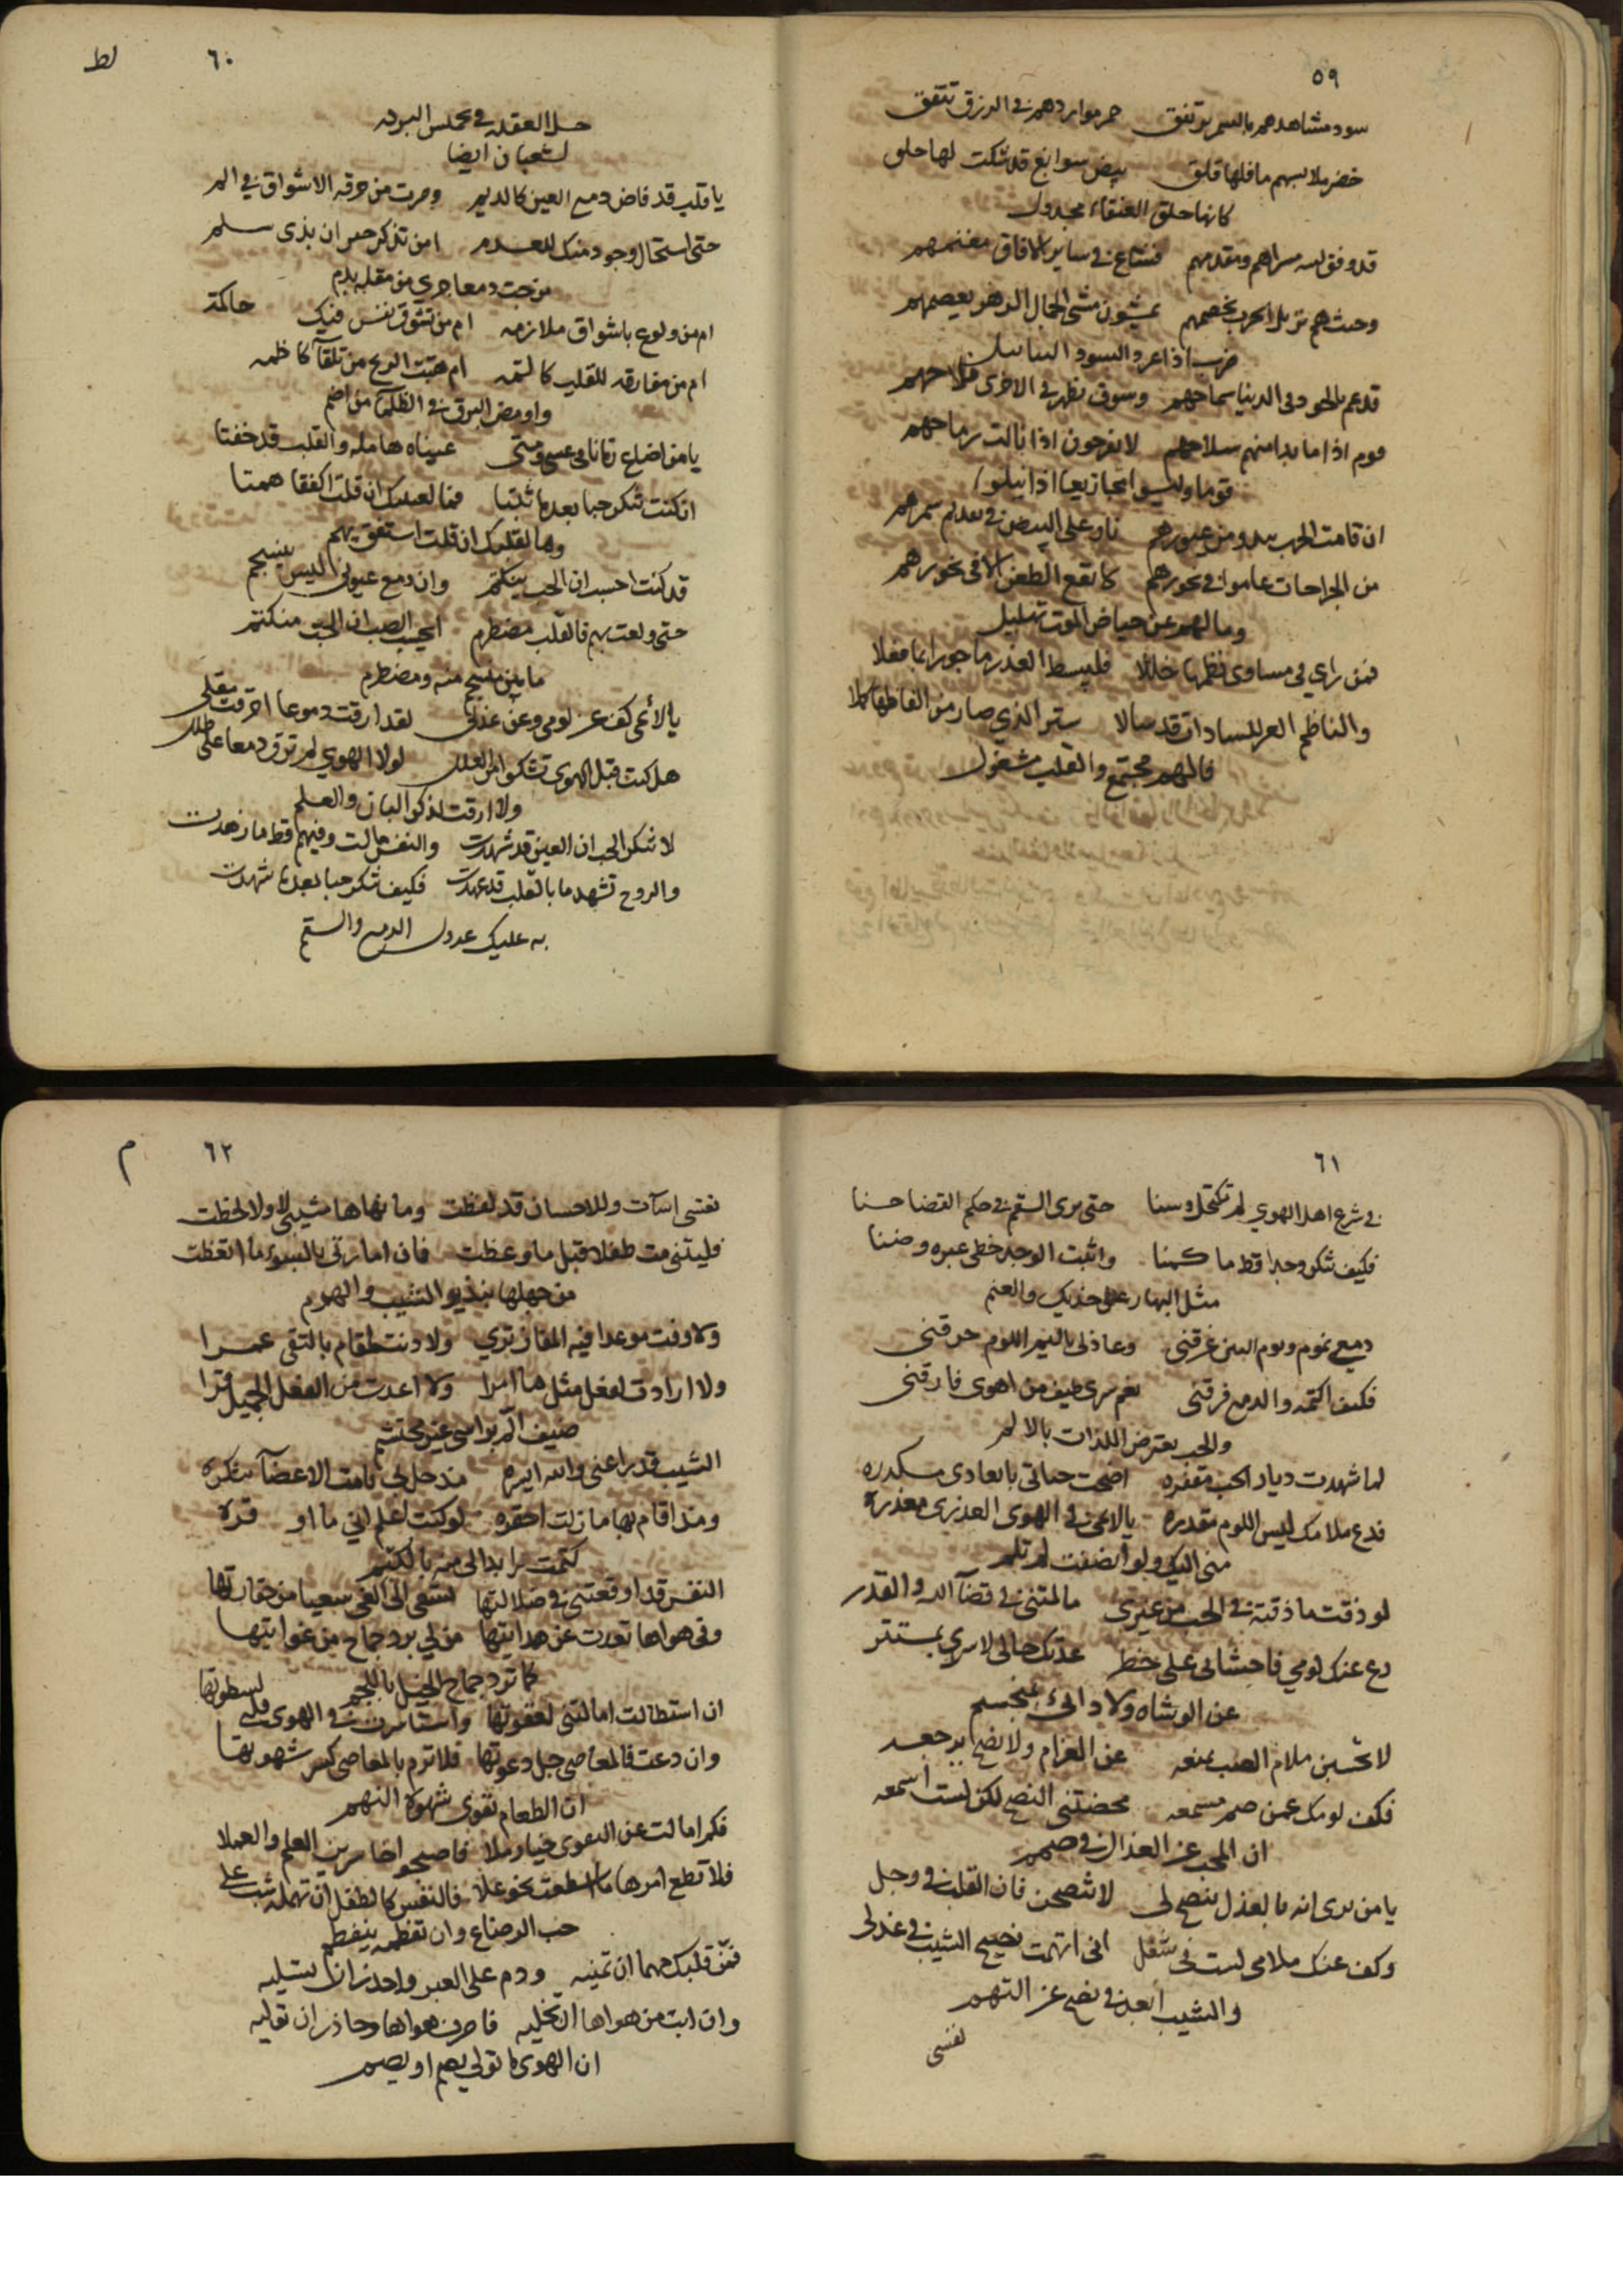 ٥٩
سود مشاهدهم بالسمر ترتفق حمر مواردهم في الزرق تتفق
خضر ملابسهم ما فلها قلق بيض سوابغ قد شكت لها حلق
كانها حلق القفعاء مجدول
قد وفق الله مسراهم ومقدمهم فشاع في ساير الافاق مغنمهم
وحيث هم نزلوا الحرب تخصمهم يمشون مشى الجمال الزهر يعصمهم
ضرب اذا عرد السود التنابيل
قد عم بالجود في الدنيا سماحهم وسوف يظهر في الاخرى فلاحهم
قوم اذا ما بدا منهم سلاحهم لا يفرحون اذا نالت رماحهم
قوما وليسوا مجازيعا اذا نيلوا
ان قامت الحرب يبدو من عبورهم نار على البيض في سمرهم
من الجراحات عاموا في بحورهم لا يقع الطعن الا في نحورهم
وما لهم عن حياض الموت تهليل
فمن راي في مساوى نظمها خللا فليبسط العذر ماجورا بما فعلا
والناظم العر للسادات قد سالا ستر الذي صار من الفاظها كلا
فالهم مجتمع والقلب مشغول
٦٠
لط
حل العقده في تخميس البرده
لشعبان ايضا
يا قلب قد فاض دمع العين كالديم وصرت من حرقه الاشواق في الم
حتى استحال وجود منك للعدم امن تذكر جيران بذى سلم
مزجت دمعا جرى من مقله بدم
ام من ولوع باشواق ملازمه ام من تشوق نفس فيك حاكمة
ام من مفارقه للقلب كالمه ام هبت الريح من تلقآ كاظمه
واومض البرق في الظلمآ من اضم
يا من اضاع زمانا في عسى ومتى عيناه هامله والقلب قد خفتا
ان كنت تنكر حبا بعدما ثبتا فما لعينك ان قلت اكففا همتا
وما لقلبك ان قلت استفق يهم
قد كنت احسب ان الحب ينكتم وان دمع عيوني ليس ينسجم
حتى ولعت بهم فالقلب مضطرم ايحسب الصب ان الحب منكتم
ما بين منسجم منه ومضطرم
يا لائمى كف عن لومى وعن عذلى لقد ارقت دموعا احرقت مقلى
هل كنت قبل الهوى تشكو من العلل لولا الهوي لم ترق دمعا على طلل
ولا ارقت لذكر البان والعلم
لا تنكر الحب ان العين قد شهدت والنفس مالت وفيهم قط ما زهدت
والروح تشهد ما بالقلب قد عهدت فكيف تنكر حبا بعدما شهدت
به عليك عدول الدمع والسقم
٦١
في شرع اهل الهوي لم تكتحل وسنا حتى يرى السقم في حكم القضا حسنا
فكيف تنكر وجدا قط ما كمنا واثبت الوجد خطى عبره وضنا
مثل البهار على خديك والعنم
دمعي نموم ويوم البين غرقنى وعاذلى باليم اللوم حرقنى
فكيف اكتمه والدمع فرقنى نعم سرى طيف من اهوى فارقنى
والحب يعترض اللذات بالالم
لما شهدت ديار الحب مقفره اضحت حياتى بابعادى مكدره
فدع ملامك ليس اللوم مقدره يا لائمى في الهوى العذري معذرة
منى اليك ولو انصفت لم تلم
لو ذقت ما ذقته في الحب من غيرى ما لمتنى في قضآ الله والقدر
دع عنك لومي فاحشائى على خطر عدتك حالى لا سري بمستتر
عن الوشاه ولا دائى بمنحسم
لا تحسبن ملام الصب يمنعه عن الغرام ولا نصح يرجعه
فكف لومك عمن صم مسمعه محضتنى النصح لكن لست اسمعه
ان المحب عن العذال في صمم
يا من يرى انه بالعذل ينصح لى لا تنصحن فان القلب في وجل
وكف عنك ملامى لست في شغل انى اتهمت نصيح الشيب في عذلى
والشيب ابعد في نصح عن التهم
نفسى
٦٢
م
نفسى اسآت وللاحسان قد لفظت وما نهاها مشيبى لا ولا لحظت
فليتنى مت طفلا قبل ما وعظت فان امارتى بالسوء ما اتعظت
من جهلها بنذير الشيب والهرم
ولا وفت موعدا فيه المفاز تري ولا دنت لمقام بالتقى عمرا
ولا ارادت لفعل مثل ما امرا ولا اعدت من الفعل الجميل قرا
ضيف الم براسي غير محتشم
الشيب قد راعنى والله ايره مذ حل بى قامت الاعضآ تنكره
ومذ اقام بها ما زلت احقره لو كنت اعلم اني ما اوقره
كتمت سرا بدا لى منه بالكتم
النفس قد اوقعتنى في ضلالتها تسعى الى الغى سعيا من حقارتها
وفى هواها تعدت عن هدايتها من لي برد جماح من غوايتها
كما ترد جماح الخيل باللجم
ان استطالت امالتنى لهفوتها واستاسرت في الهوى قلبى لسطوتها
وان دعت فالمعاصى جل دعوتها فلا ترم بالمعاصى كسر شهوتها
ان الطعام يقوي شهوة النهم
فكم امالت عن التقوى خيار ملا فاصبحوا خاسرين العلم والعملا
فلا تطع امرها ما اسطعت نحو علا فالنفس كالطفل ان تهمله شب على
حب الرضاع وان تفطمه ينفطم
فمن قلبك مهما ان تمنيه ودم على الصبر واحذر ان تسليه
وان ابت من هواها ان تخليه فاصرف هواها وحاذر ان توليه
ان الهوى ما تولى يصم او يصم